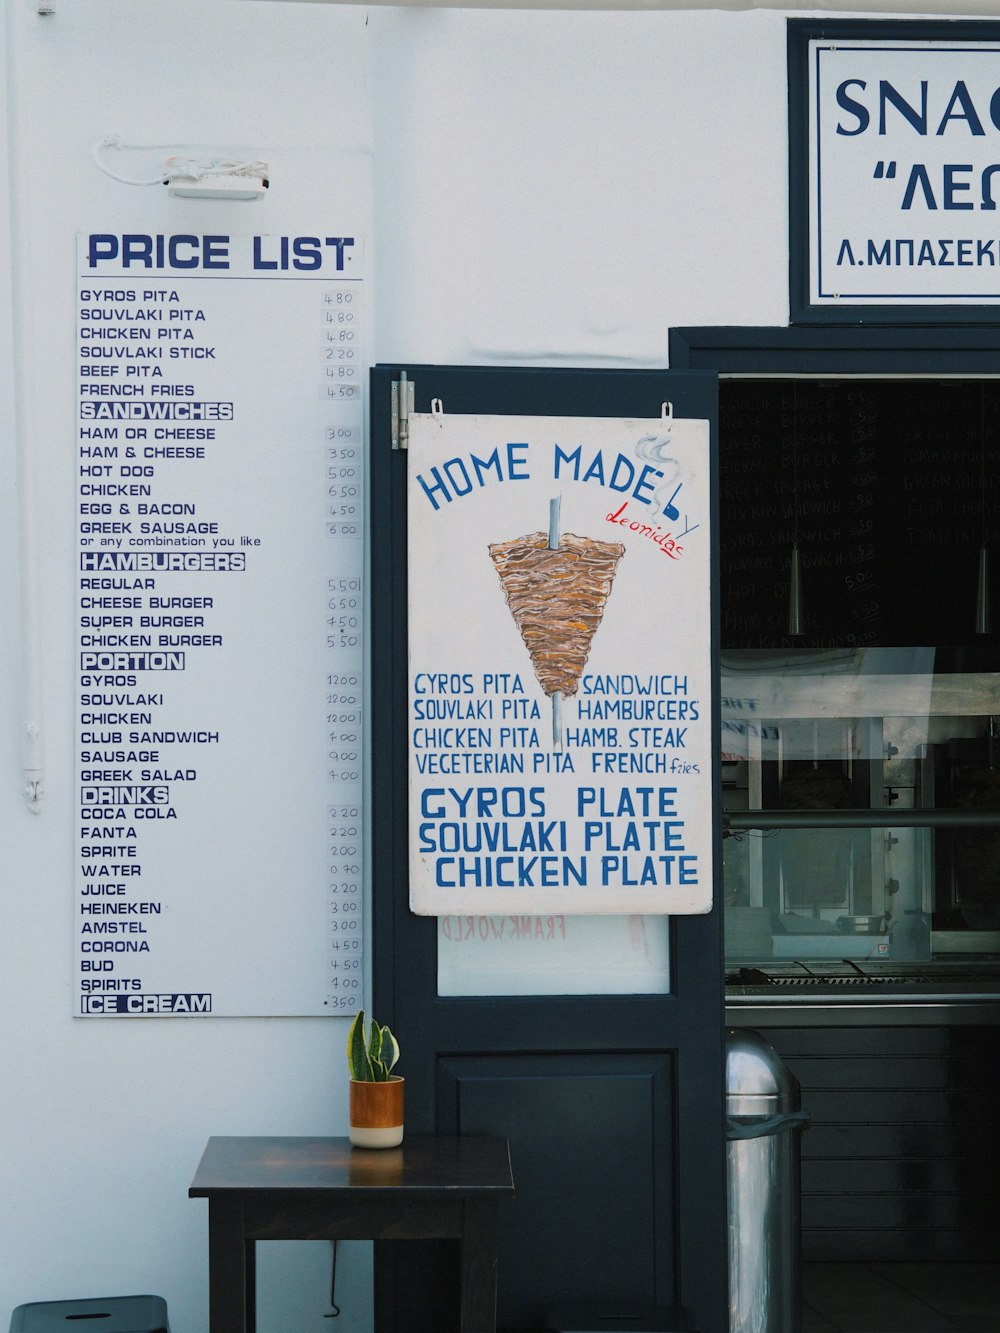 SNAC
"ΛΕΩ
Λ.ΜΠΑΣΕΚ
PRICE LIST
GYROS PITA 480
SOUVLAKI PITA 480
CHICKEN PITA 480
SOUVLAKI STICK 220
BEEF PITA 480
FRENCH FRIES 450
SANDWICHES
HAM OR CHEESE 300
HAM & CHEESE 350
HOT DOG 500
CHICKEN 650
EGG & BACON 450
GREEK SAUSAGE 600
or any combination you like
HAMBURGERS
REGULAR 550
CHEESE BURGER 650
SUPER BURGER 750
CHICKEN BURGER 550
PORTION
GYROS 1200
SOUVLAKI 1200
CHICKEN 1200
CLUB SANDWICH 700
SAUSAGE 900
GREEK SALAD 700
DRINKS
COCA COLA 220
FANTA 220
SPRITE 200
WATER 070
JUICE 220
HEINEKEN 300
AMSTEL 300
CORONA 450
BUD 450
SPIRITS 700
ICE CREAM 350
HOME MADE by
Leonidas
GYROS PITA SANDWICH
SOUVLAKI PITA HAMBURGERS
CHICKEN PITA HAMB. STEAK
VEGETERIAN PITA FRENCH fries
GYROS PLATE
SOUVLAKI PLATE
CHICKEN PLATE
FRANKWORLD